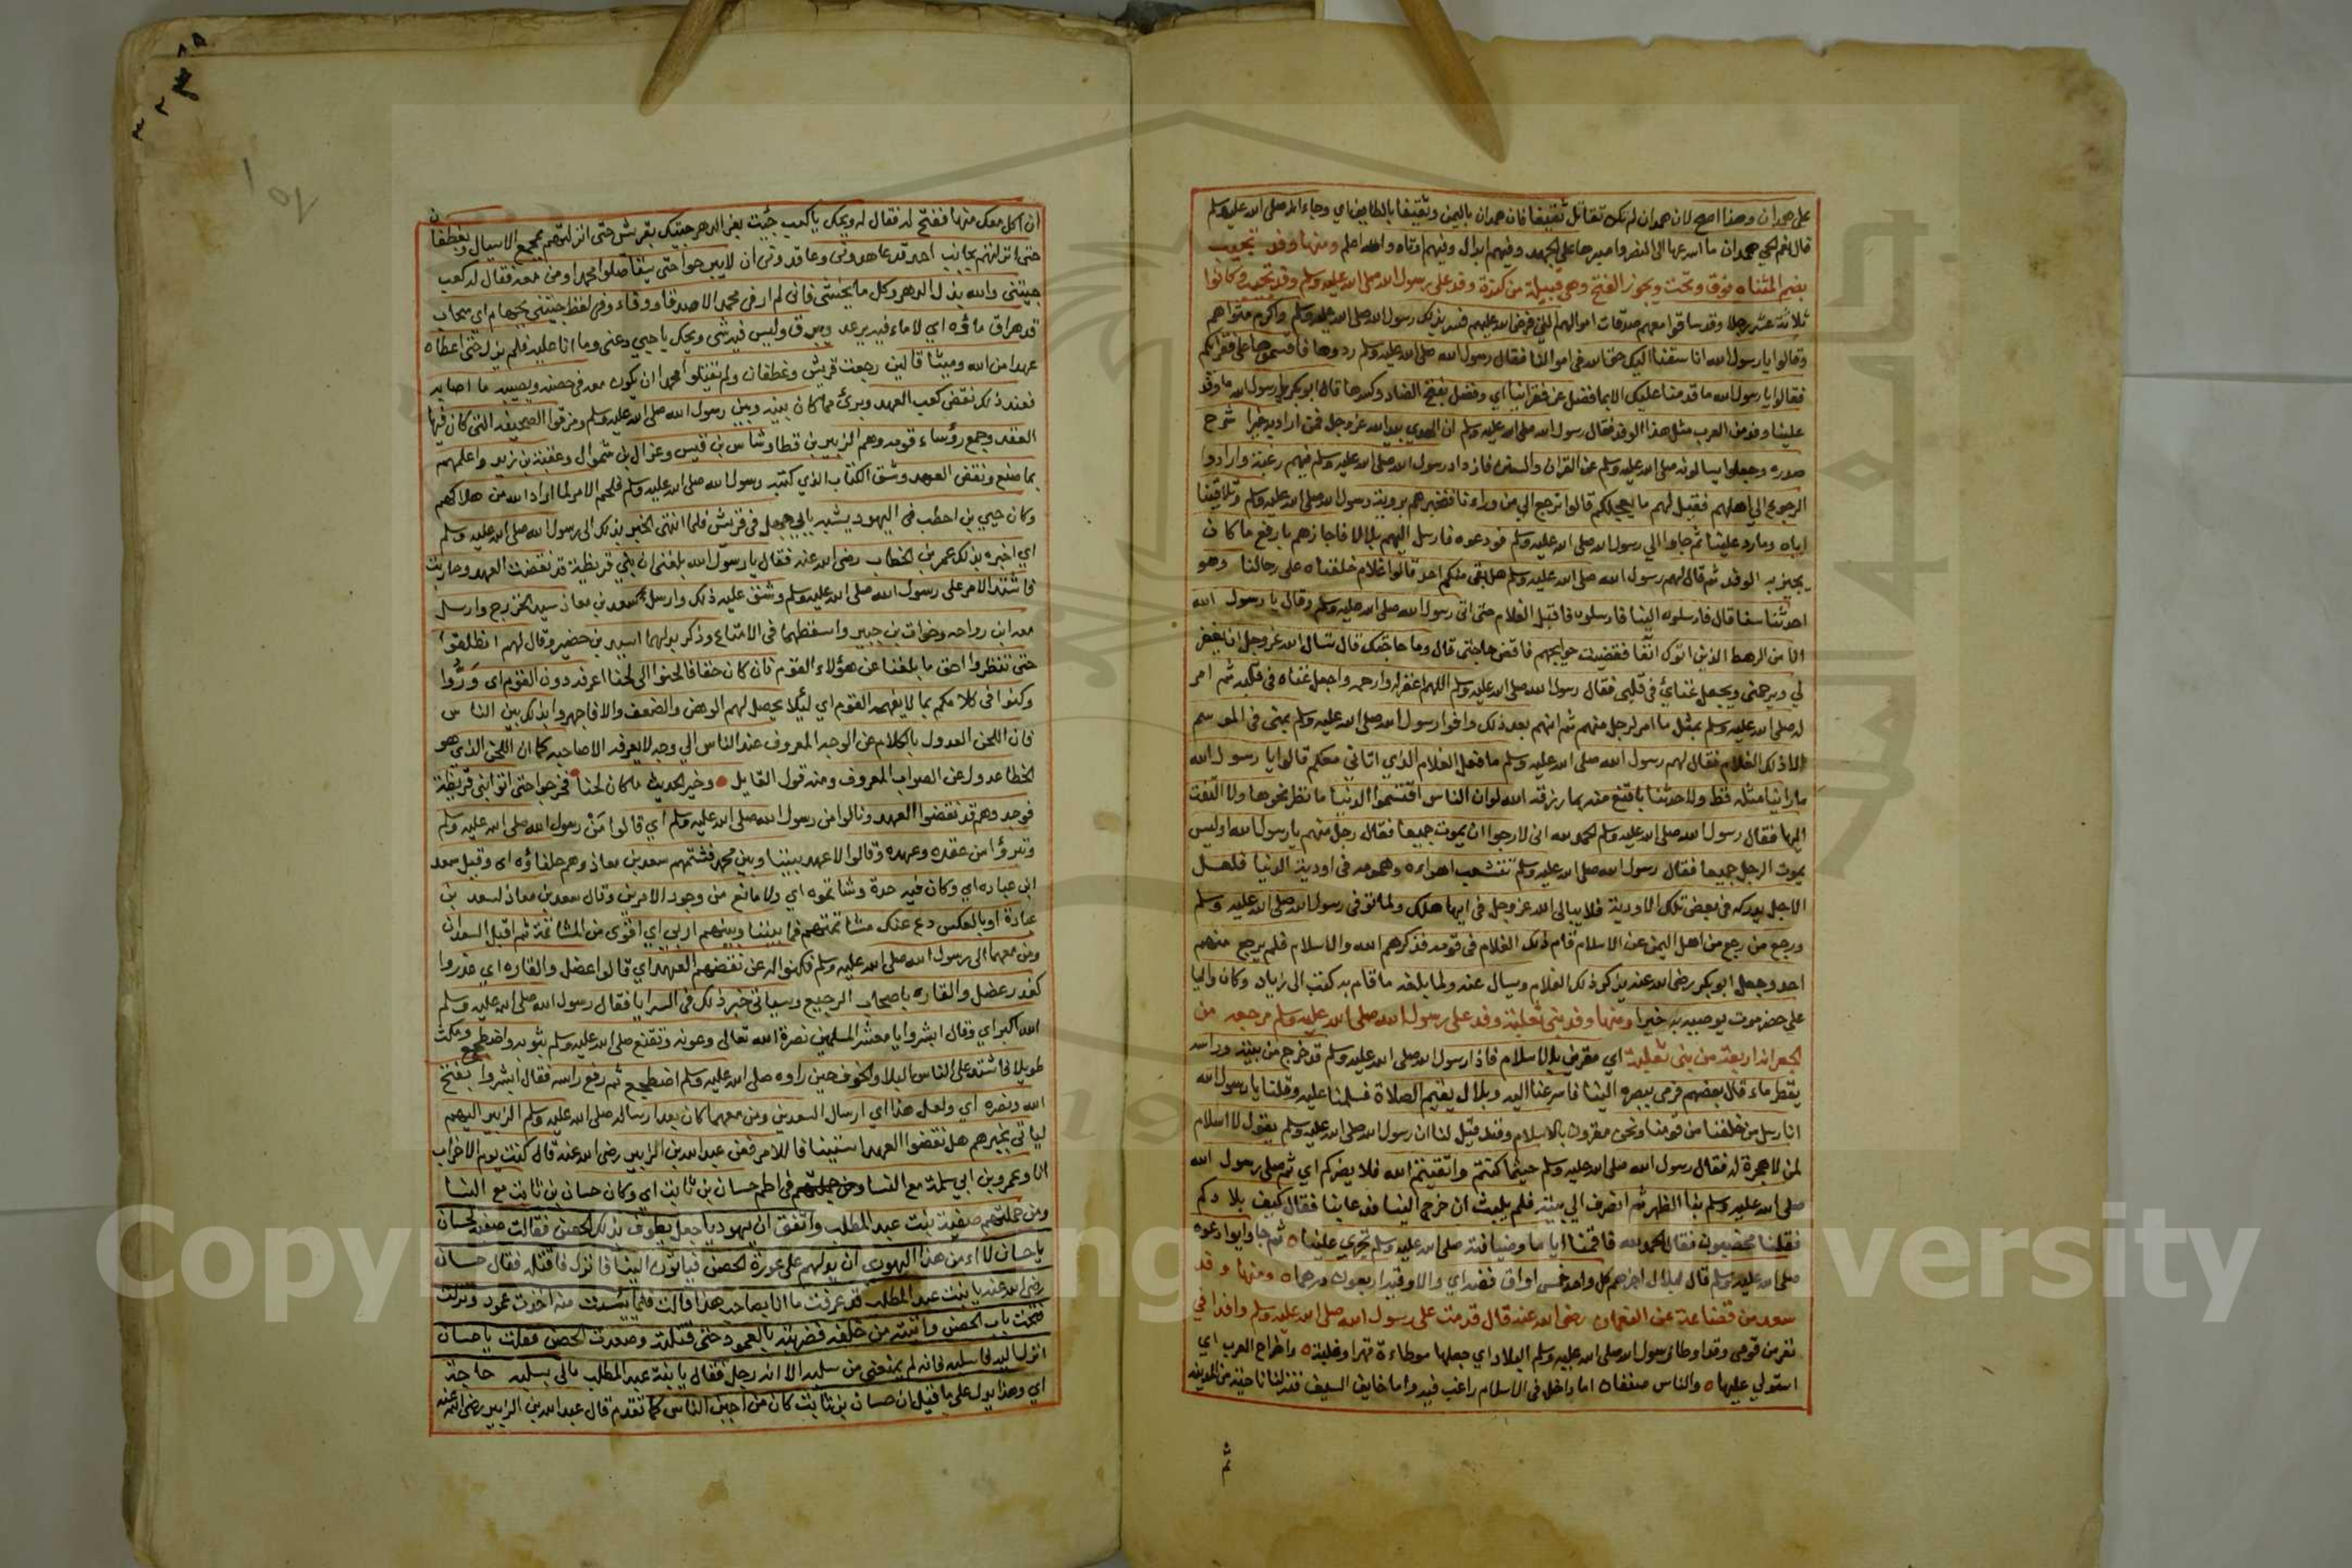 على همدان وهذا اصح لان همدان لم تكن تقاتل ثقيفا فان همدان باليمن وثقيفا بالطايف اي وجاء انه صلى الله عليه وسلم
قال نعم الحي همدان ما اسرعها الى النصر واصبرها على الجهد وفيهم ابدال وفيهم اوتاد والله اعلم ومنها وفد تجيب
بضم المثناه فوق وتحت ويجوز الفتح وهي قبيلة من كندة وفد على رسول الله صلى الله عليه وسلم وفد تجيب وكانوا
ثلاثة عشر رجلا وقد ساقوا معهم صدقات اموالهم التي فرض الله عليهم فسر بذلك رسول الله صلى الله عليه وسلم واكرم مثواهم
وقالوا يا رسول الله انا سقنا اليك حق الله في اموالنا فقال رسول الله صلى الله عليه وسلم ردوها فاقسموها على فقرائكم
فقالوا يا رسول الله ما قدمنا عليك الا بما فضل عن فقرائنا اي وفضل بفتح الضاد وكسرها قال ابو بكر يا رسول الله ما وفد
علينا وفد من العرب مثل هذا الوفد فقال رسول الله صلى الله عليه وسلم ان الهدي بيد الله عز وجل فمن اراد به خيرا شرح
صدره وجعلوا يسالونه صلى الله عليه وسلم عن القران والسنن فازداد رسول الله صلى الله عليه وسلم فيهم رغبة وارادوا
الرجوع الى اهلهم فقيل لهم ما يعجلكم قالوا نرجع الى من وراءنا فنخبرهم بروية رسول الله صلى الله عليه وسلم وتلاقينا
اياه وما رد علينا ثم جاوا الى رسول الله صلى الله عليه وسلم فودعوه فارسل اليهم بلالا فاجازهم بارفع ما كان
يجيز به الوفد ثم قال لهم رسول الله صلى الله عليه وسلم هل بقي منكم احد قالوا غلام خلفناه على رحالنا وهو
احدثنا سنا قال فارسلوه الينا فارسلوه فاقبل الغلام حتى اتى رسول الله صلى الله عليه وسلم وقال يا رسول الله
انا من الرهط الذين اتوك انفا فقضيت حوايجهم فاقض حاجتي قال وما حاجتك قال تسال الله عز وجل ان يغفر
لي ويرحمني ويجعل غنائي في قلبي فقال رسول الله صلى الله عليه وسلم اللهم اغفر له وارحمه واجعل غناه في قلبه ثم امر
له صلى الله عليه وسلم بمثل ما امر لرجل منهم ثم انهم بعد ذلك وافوا رسول الله صلى الله عليه وسلم بمنى في الموسم
الا ذلك الغلام فقال لهم رسول الله صلى الله عليه وسلم ما فعل الغلام الذي اتاني معكم قالوا يا رسول الله
ما راينا مثله قط ولا حدثنا باقنع منه بما رزقه الله لو ان الناس اقتسموا الدنيا ما نظر نحوها ولا التفت
اليها فقال رسول الله صلى الله عليه وسلم الحمد لله اني لارجوا ان يموت جميعا فقال رجل منهم يا رسول الله اوليس
يموت الرجل جميعا فقال رسول الله صلى الله عليه وسلم تتشعب اهواءه وهمومه في اودية الدنيا فلعل
الاجل يدركه في بعض تلك الاودية فلا يبالي الله عز وجل في ايها هلك ولما توفى رسول الله صلى الله عليه وسلم
ورجع من رجع من اهل اليمن عن الاسلام قام ذلك الغلام في قومه فذكرهم الله والاسلام فلم يرجع منهم
احد وجعل ابو بكر رضى الله عنه يذكر ذلك الغلام ويسال عنه ولما بلغه ما قام به كتب الى زياد وكان واليا
على حضرموت يوصيه به خيرا ومنها وفد بني ثعلبة وفد على رسول الله صلى الله عليه وسلم مرجعه من
الجعرانه اربعة من بني ثعلبة اي مقرين بالاسلام فاذا رسول الله صلى الله عليه وسلم قد خرج من بيته وراسه
يقطر ماء قال بعضهم فرمى ببصره الينا فاسرعنا اليه وبلال يقيم الصلاة فسلمنا عليه وقلنا يا رسول الله
انا رسل من خلفنا من قومنا ونحن مقرون بالاسلام وقد قيل لنا ان رسول الله صلى الله عليه وسلم يقول لا اسلام
لمن لا هجرة له فقال رسول الله صلى الله عليه وسلم حيثما كنتم واتقيتم الله فلا يضركم اي ثم صلى رسول الله
صلى الله عليه وسلم بنا الظهر ثم انصرف الى بيته فلم يلبث ان خرج الينا فدعا بنا فقال كيف بلادكم
فقلنا مخصبون فقال الحمد لله فاقمنا اياما وضيافته صلى الله عليه وسلم تجري علينا ثم جاوا يوادعوه
صلى الله عليه وسلم قال لبلال اجزهم كل واحد خمس اواق فضه اي والاوقيه اربعون درهما ومنها وفد
سعد من قضاعة عن النعمان رضى الله عنه قال قدمت على رسول الله صلى الله عليه وسلم وافدا في
نفر من قومي وقد اوطا رسول الله صلى الله عليه وسلم البلاد اي جعلها موطاءة قهرا وغلبة واطراح العرب اي
استولى عليها والناس صنفان اما داخل في الاسلام راغب فيه واما خايف السيف فنزلنا ناحية من المدينة
ثم
ان اكل معك منها ففتح له فقال له ويحك يا كعب جيت بعز الدهر جيتك بقريش حتى انزلتهم بمجمع الاسيال وبغطفان
حتى انزلتهم بجانب احد قد عاهدوني وعاقدوني ان لا يبرحوا حتى يستاصلوا محمدا ومن معه فقال له كعب
جيتني والله بذل الدهر وكل ما يخشى فاني لم ار في محمد الا صدقا ووفاء وفي لفظ جيتني بجهام اي سحاب
قد هراق ماؤه اي لا ماء فيه يرعد ويبرق وليس فيه شي ويحك يا حيي دعني وما انا عليه فلم يزل حتى اعطاه
عهدا من الله وميثاقا لين رجعت قريش وغطفان ولم تقتلوا محمدا ان يكون معه في حصنه ويصيبه ما اصابه
فعند ذلك نقض كعب العهد وبرئ مما كان بينه وبين رسول الله صلى الله عليه وسلم ومزقوا الصحيفه التي كان فيها
العقد وجمع رؤساء قومه وهم الزبير بن قطا وشاس بن قيس وعزال بن شموال وعقبة بن زيد واعلمهم
بما صنع ونقض العهد وشق الكتاب الذي كتبه رسول الله صلى الله عليه وسلم فلحم الامر لما اراد الله من هلاكهم
وكان حيي بن اخطب في اليهود يشبه بابي جهل في قريش فلما انتهى الخبر بذلك الى رسول الله صلى الله عليه وسلم
اي اخبره بذلك عمر بن الخطاب رضى الله عنه فقال يا رسول الله بلغني ان بني قريظة قد نقضت العهد وحاربت
فاشتد الامر على رسول الله صلى الله عليه وسلم وشق عليه ذلك وارسل سعد بن معاذ سيد الخزرج وارسل
معه ابن رواحه وخوات بن جبير واسقطهما في الامتاع وذكر بدلهما اسيد بن حضير وقال لهم انطلقوا
حتى تنظروا احق ما بلغنا عن هؤلاء القوم فان كان حقا فالحنوا الى لحنا اعرفه دون القوم اي وروا
وكنوا في كلامكم بما لا يفهمه القوم اي ليلا يحصل لهم الوهن والضعف والا فاجهروا بذلك بين الناس
فان اللحن العدول بالكلام عن الوجه المعروف عند الناس الى وجه لا يعرفه الا صاحبه كما ان اللحن الذي هو
الخطا عدول عن الصواب المعروف ومنه قول القايل وخير الحديث ما كان لحنا فخرجوا حتى اتوا بني قريظة
فوجدوهم قد نقضوا العهد ونالوا من رسول الله صلى الله عليه وسلم اي قالوا من رسول الله صلى الله عليه وسلم
وتبرؤا من عقده وعهده وقالوا لا عهد بيننا وبين محمد فشتمهم سعد بن معاذ وهم حلفاؤه اي وقيل سعد
ابن عباده اي وكان فيه حدة وشاتموه اي ولا مانع من وجود الامرين وقال سعد بن معاذ لسعد بن
عبادة او بالعكس دع عنك مشاتمتهم فما بيننا وبينهم اربى اي اقوى من المشاتمة ثم اقبل السعدان
ومن معهما الى رسول الله صلى الله عليه وسلم فكنوا له عن نقضهم العهد اي قالوا عضل والقاره اي غدروا
كغدر عضل والقاره باصحاب الرجيع وسياتي خبر ذلك في السرايا فقال رسول الله صلى الله عليه وسلم
الله اكبر اي وقال ابشروا يا معشر المسلمين نصرة الله تعالى وعونه وتقنع صلى الله عليه وسلم بثوبه واضطجع ومكث
طويلا فاشتد على الناس البلا والخوف حين راوه صلى الله عليه وسلم اضطجع ثم رفع راسه فقال ابشروا بفتح
الله ونصره اي ولعل هذا اي ارسال السعدين ومن معهما كان بعد ارساله صلى الله عليه وسلم الزبير اليهم
لياتي بخبرهم هل نقضوا العهد استثباتا للامر فعن عبد الله بن الزبير رضى الله عنه قال كنت يوم الاحزاب
انا وعمرو بن ابي سلمة مع النسا في اطم حسان بن ثابت اي وكان حسان بن ثابت مع النسا
ومن جملتهم صفية بنت عبد المطلب واتفق ان يهوديا جعل يطوف بذلك الحصن فقالت صفية لحسان
يا حسان لا امن هذا اليهودي ان يدلهم على عورة الحصن فياتون الينا فانزل فاقتله فقال حسان
رضى الله عنه يا بنت عبد المطلب قد عرفت ما انا بصاحب هذا قالت فلما يئست منه اخذت عمود ونزلت
ففتحت باب الحصن واتيته من خلفه فضربته بالعمود حتى قتلته وصعدت الحصن فقلت يا حسان
انزل اليه فاسلبه فانه لم يمنعني من سلبه الا انه رجل فقال يا بنة عبد المطلب مالي بسلبه حاجة
اي وهذا يدل على ما قيل ان حسان بن ثابت كان من اجبن الناس كما تقدم قال عبد الله بن الزبير رضى الله عنه